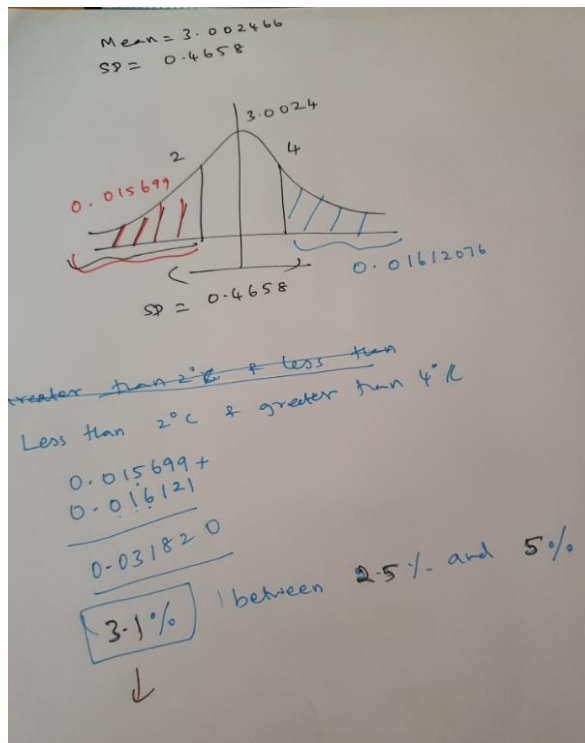 Mean = 3.002466
SD = 0.4658
3.0024
2
4
0.015699
0.01612076
SD = 0.4658
greater than 2°C & less than
Less than 2°C & greater than 4°C
0.015699 +
0.016121
0.031820
3.1% between 2.5% and 5%